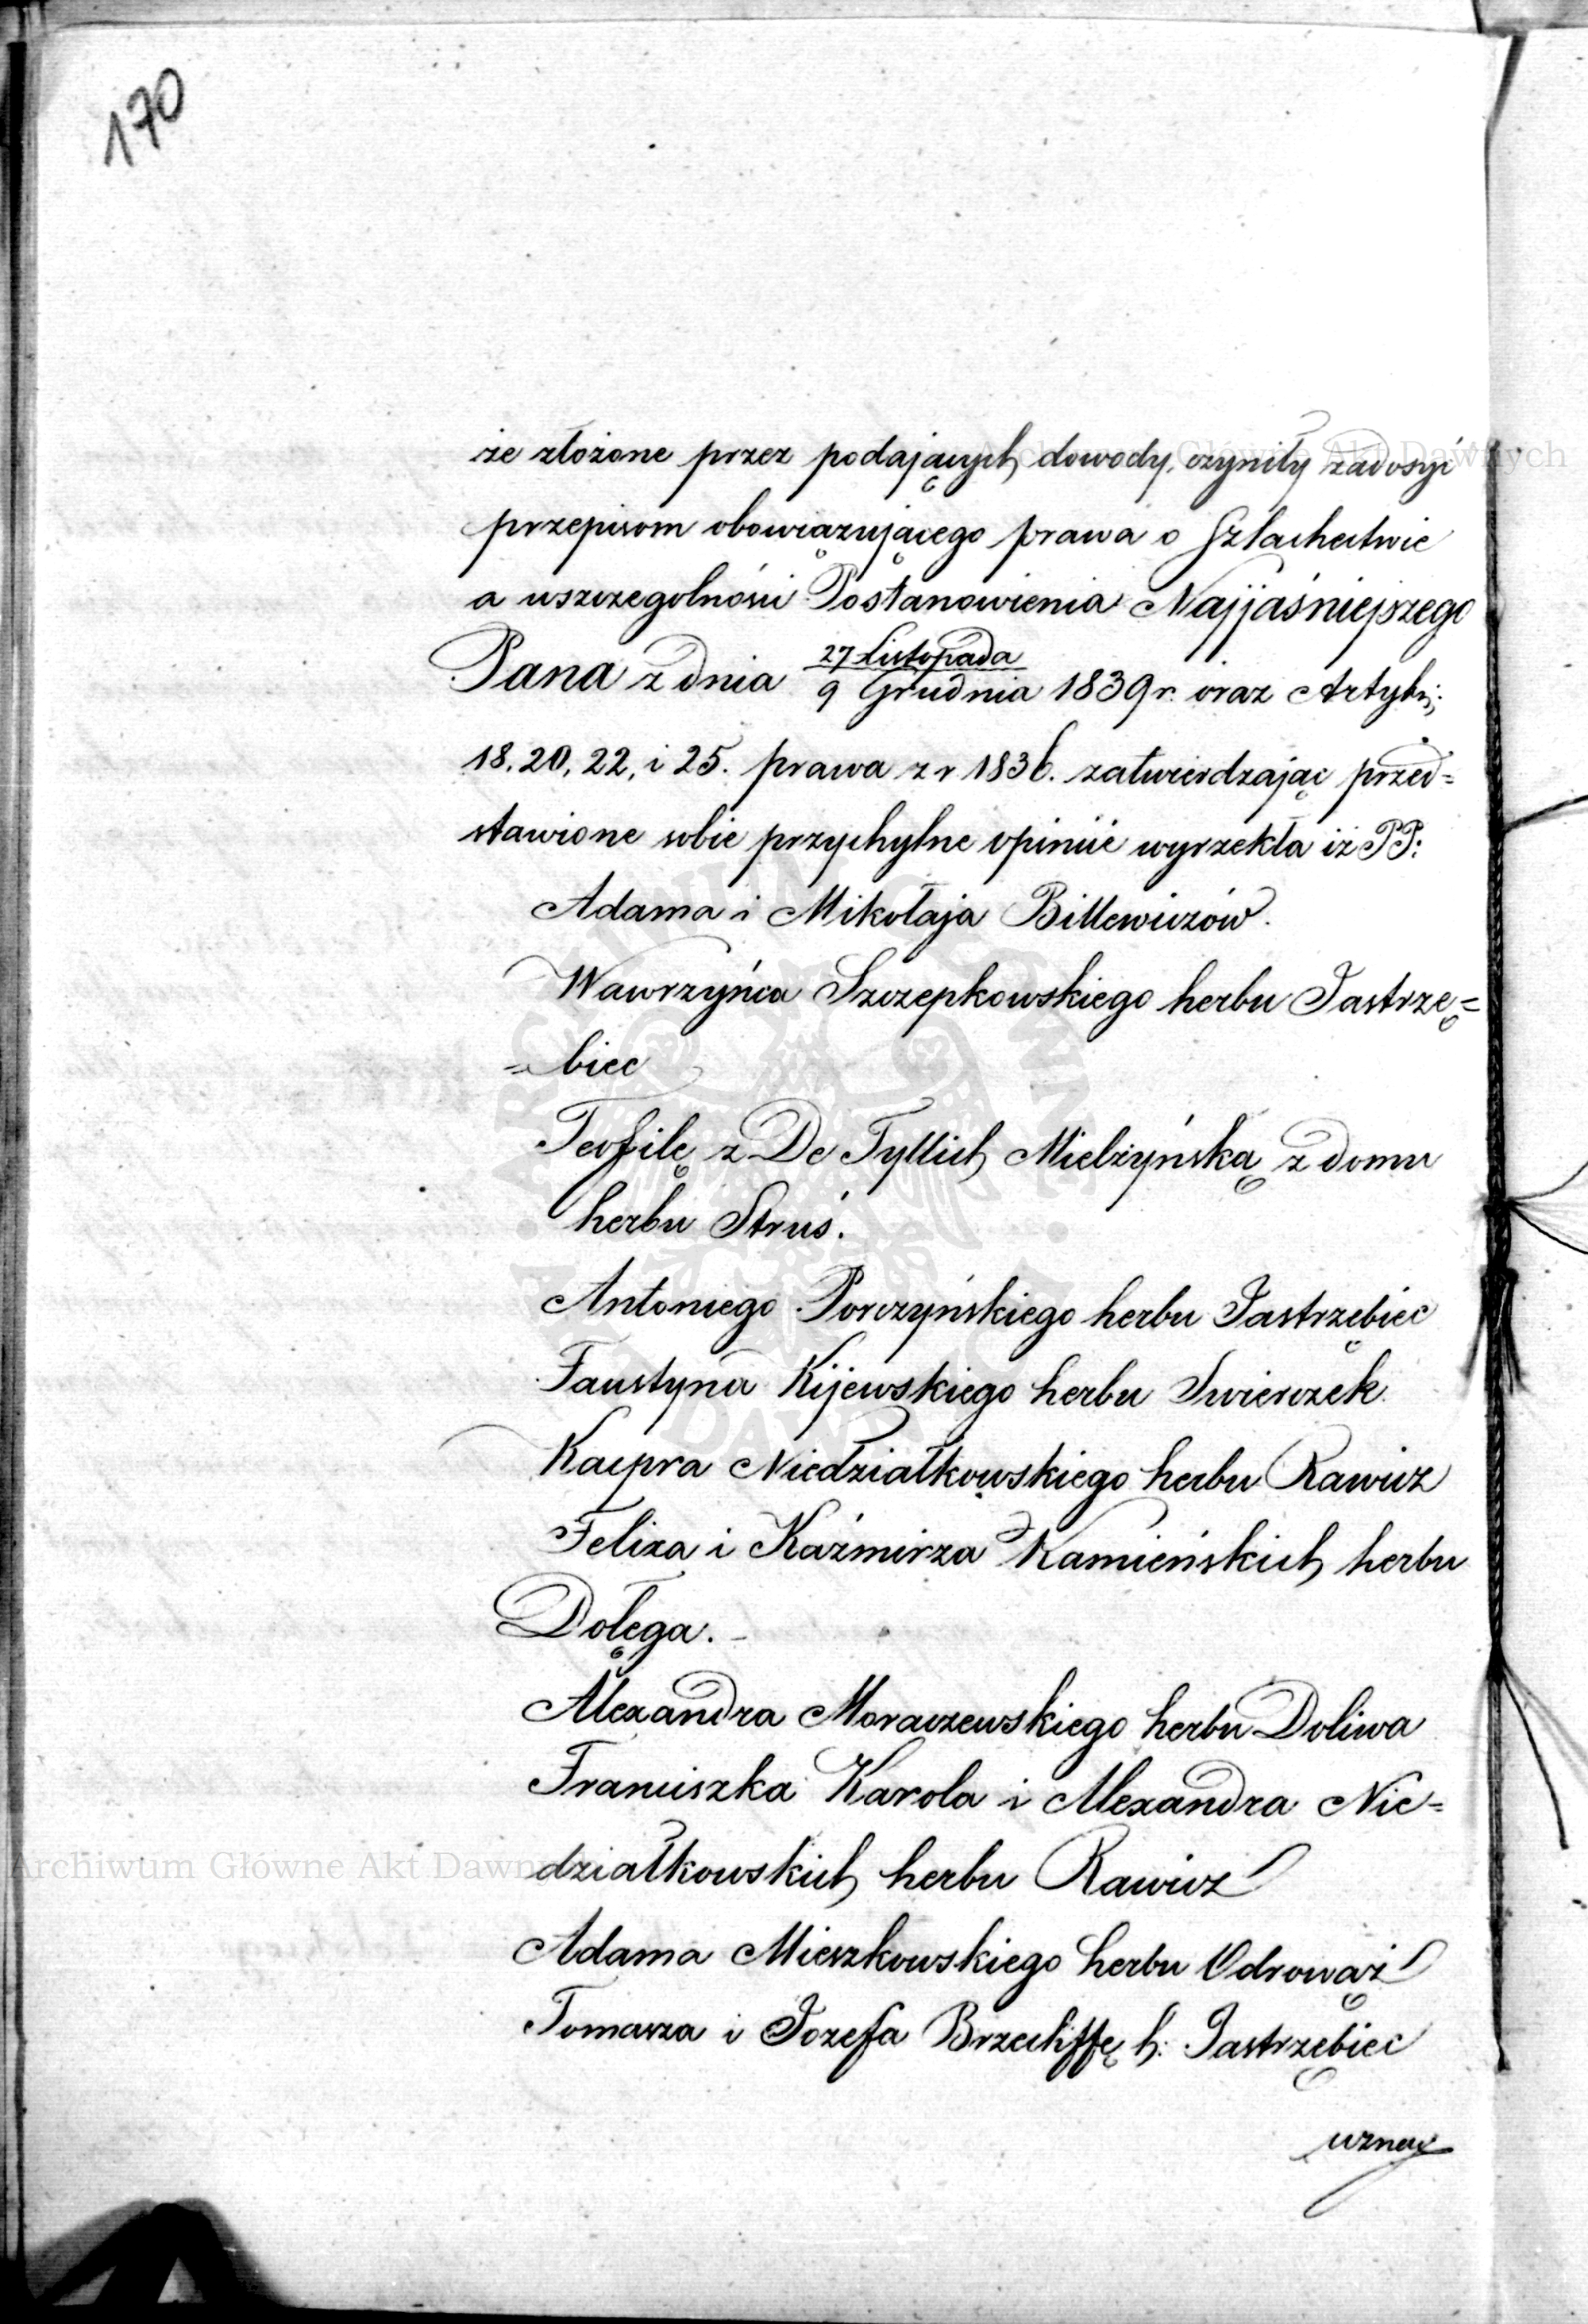 170
że złożone przez podających dowody, czyniły zadosyć
przepisom obowiązującego prawa o Szlachectwie
a wszczegolności Postanowienia Najjaśniejszego
Pana z dnia 27 Listopada
9 Grudnia 1839 r. oraz Artyk:
18. 20, 22, i 25. prawa z r 1836. zatwierdzając przed=
stawione sobie przychylne opinije wyrzekła iż PP:
Adama i Mikołaja Billewiczów.
Wawrzyńca Szczepkowskiego herbu Jastrzę=
=biec
Teofilę z De Tyllich Mielżyńską z domu
herbu Struś.
Antoniego Porczyńskiego herbu Jastrzębiec
Faustyna Kijewskiego herbu Swierczek
Kacpra Niedziałkowskiego herbu Rawicz
Felixa i Kaźmirza Kamieńskich herbu
Dołęga. -
Alexandra Moraczewskiego herbu Doliwa
Franciszka Karola i Alexandra Nie=
działkowskich herbu Rawicz
Adama Mieszkowskiego herbu Odrowąż
Tomasza i Jozefa Brzechffę h: Jastrzębiec
uznać
Archiwum Główne Akt Dawnych
Archiwum Główne Akt Dawnych
ARCHIWUM GŁÓWNE AKT DAWNYCH